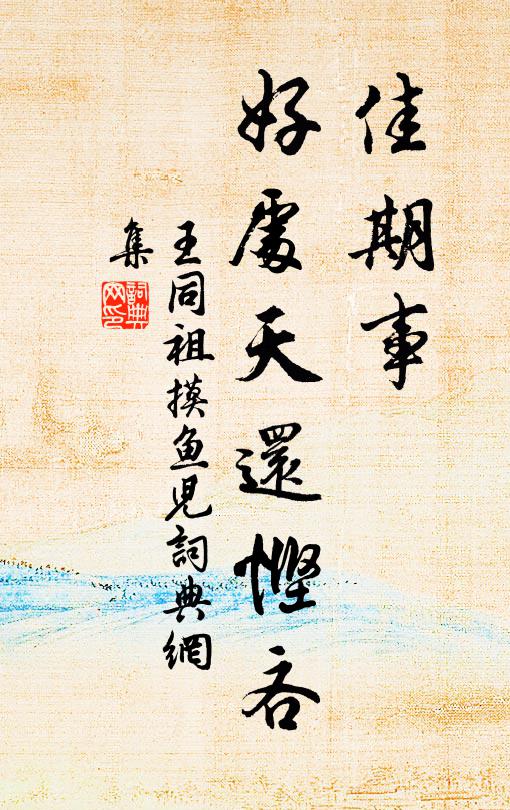 佳期事
好處天還慳吝
王同祖摸魚兒詞典網
集
詞典網印